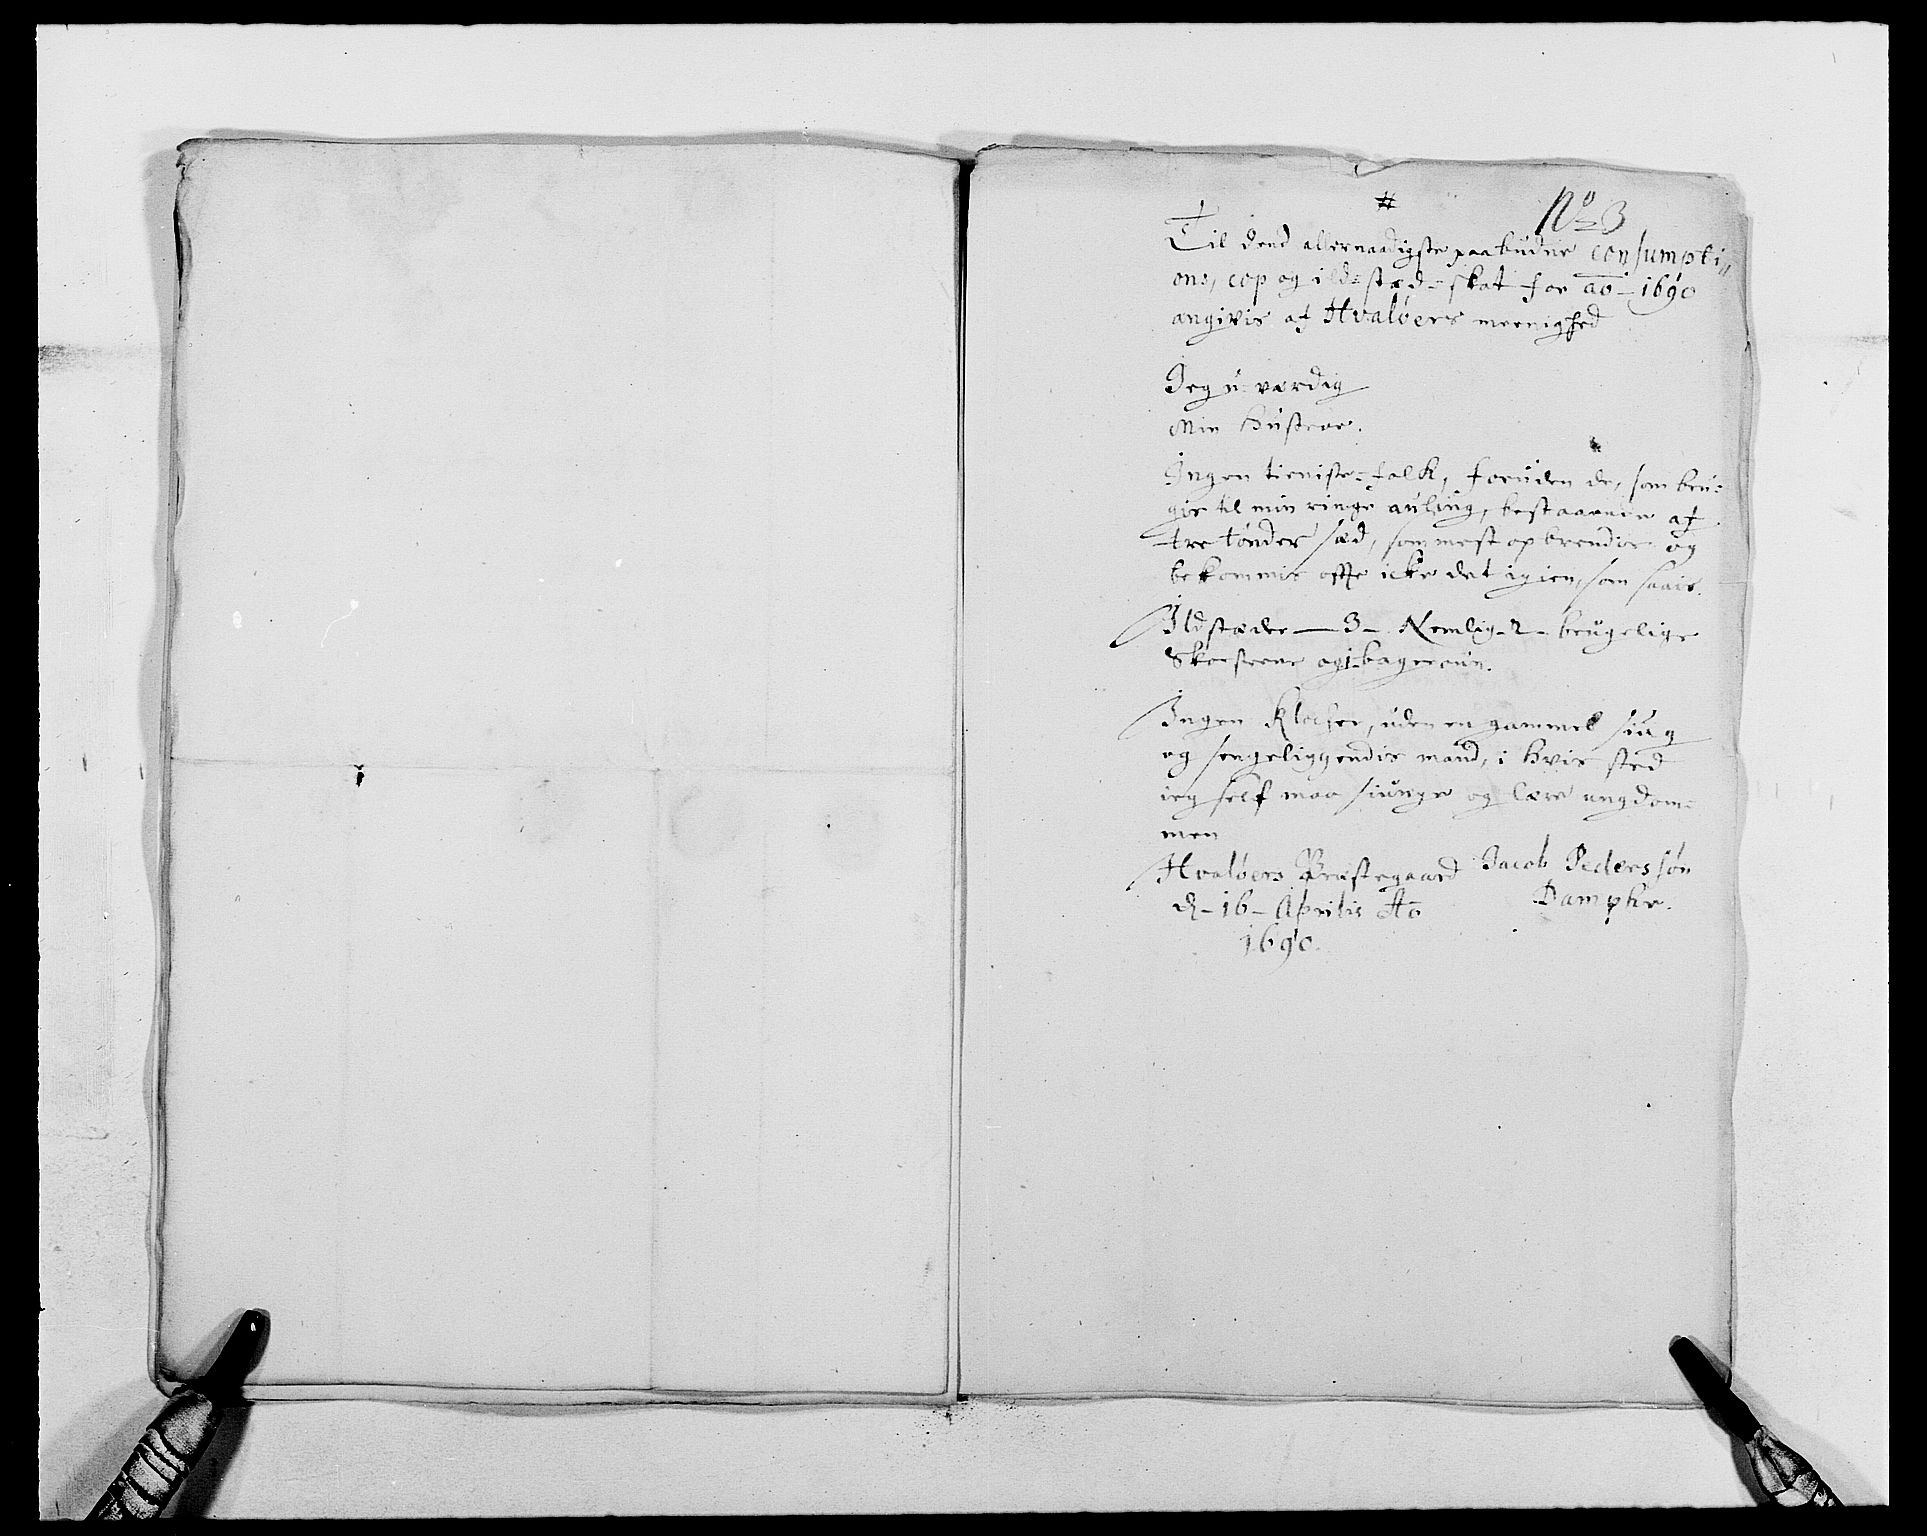 #
No 3
Til dend allernaadigste paabudne consumpti
ons, cop og ild=stæd=skat for ao 1690
angivis af Hvaløers meenighed
Jeg u-værdig
Min Hustroe.
Ingen tieniste=folk, foruden de, som bru=
gis til min ringe auling, bestaaende af
tre tønder sæd, som mest opbrendis og
bekommis offte icke det igien, som saais.
Ildstæder — 3 — Nemlig - 2 - brugelige
Skorsteene og 1 bageroun.
Ingen Klocker, uden en gammel siug
og sengeliggendis mand, i hvis sted
ieg self maa siunge og lære ungdom=
men
Hvaløers Præstegaard Jacob Pederssøn
d - 16 - Aprilis Ao Dampke.
1690.